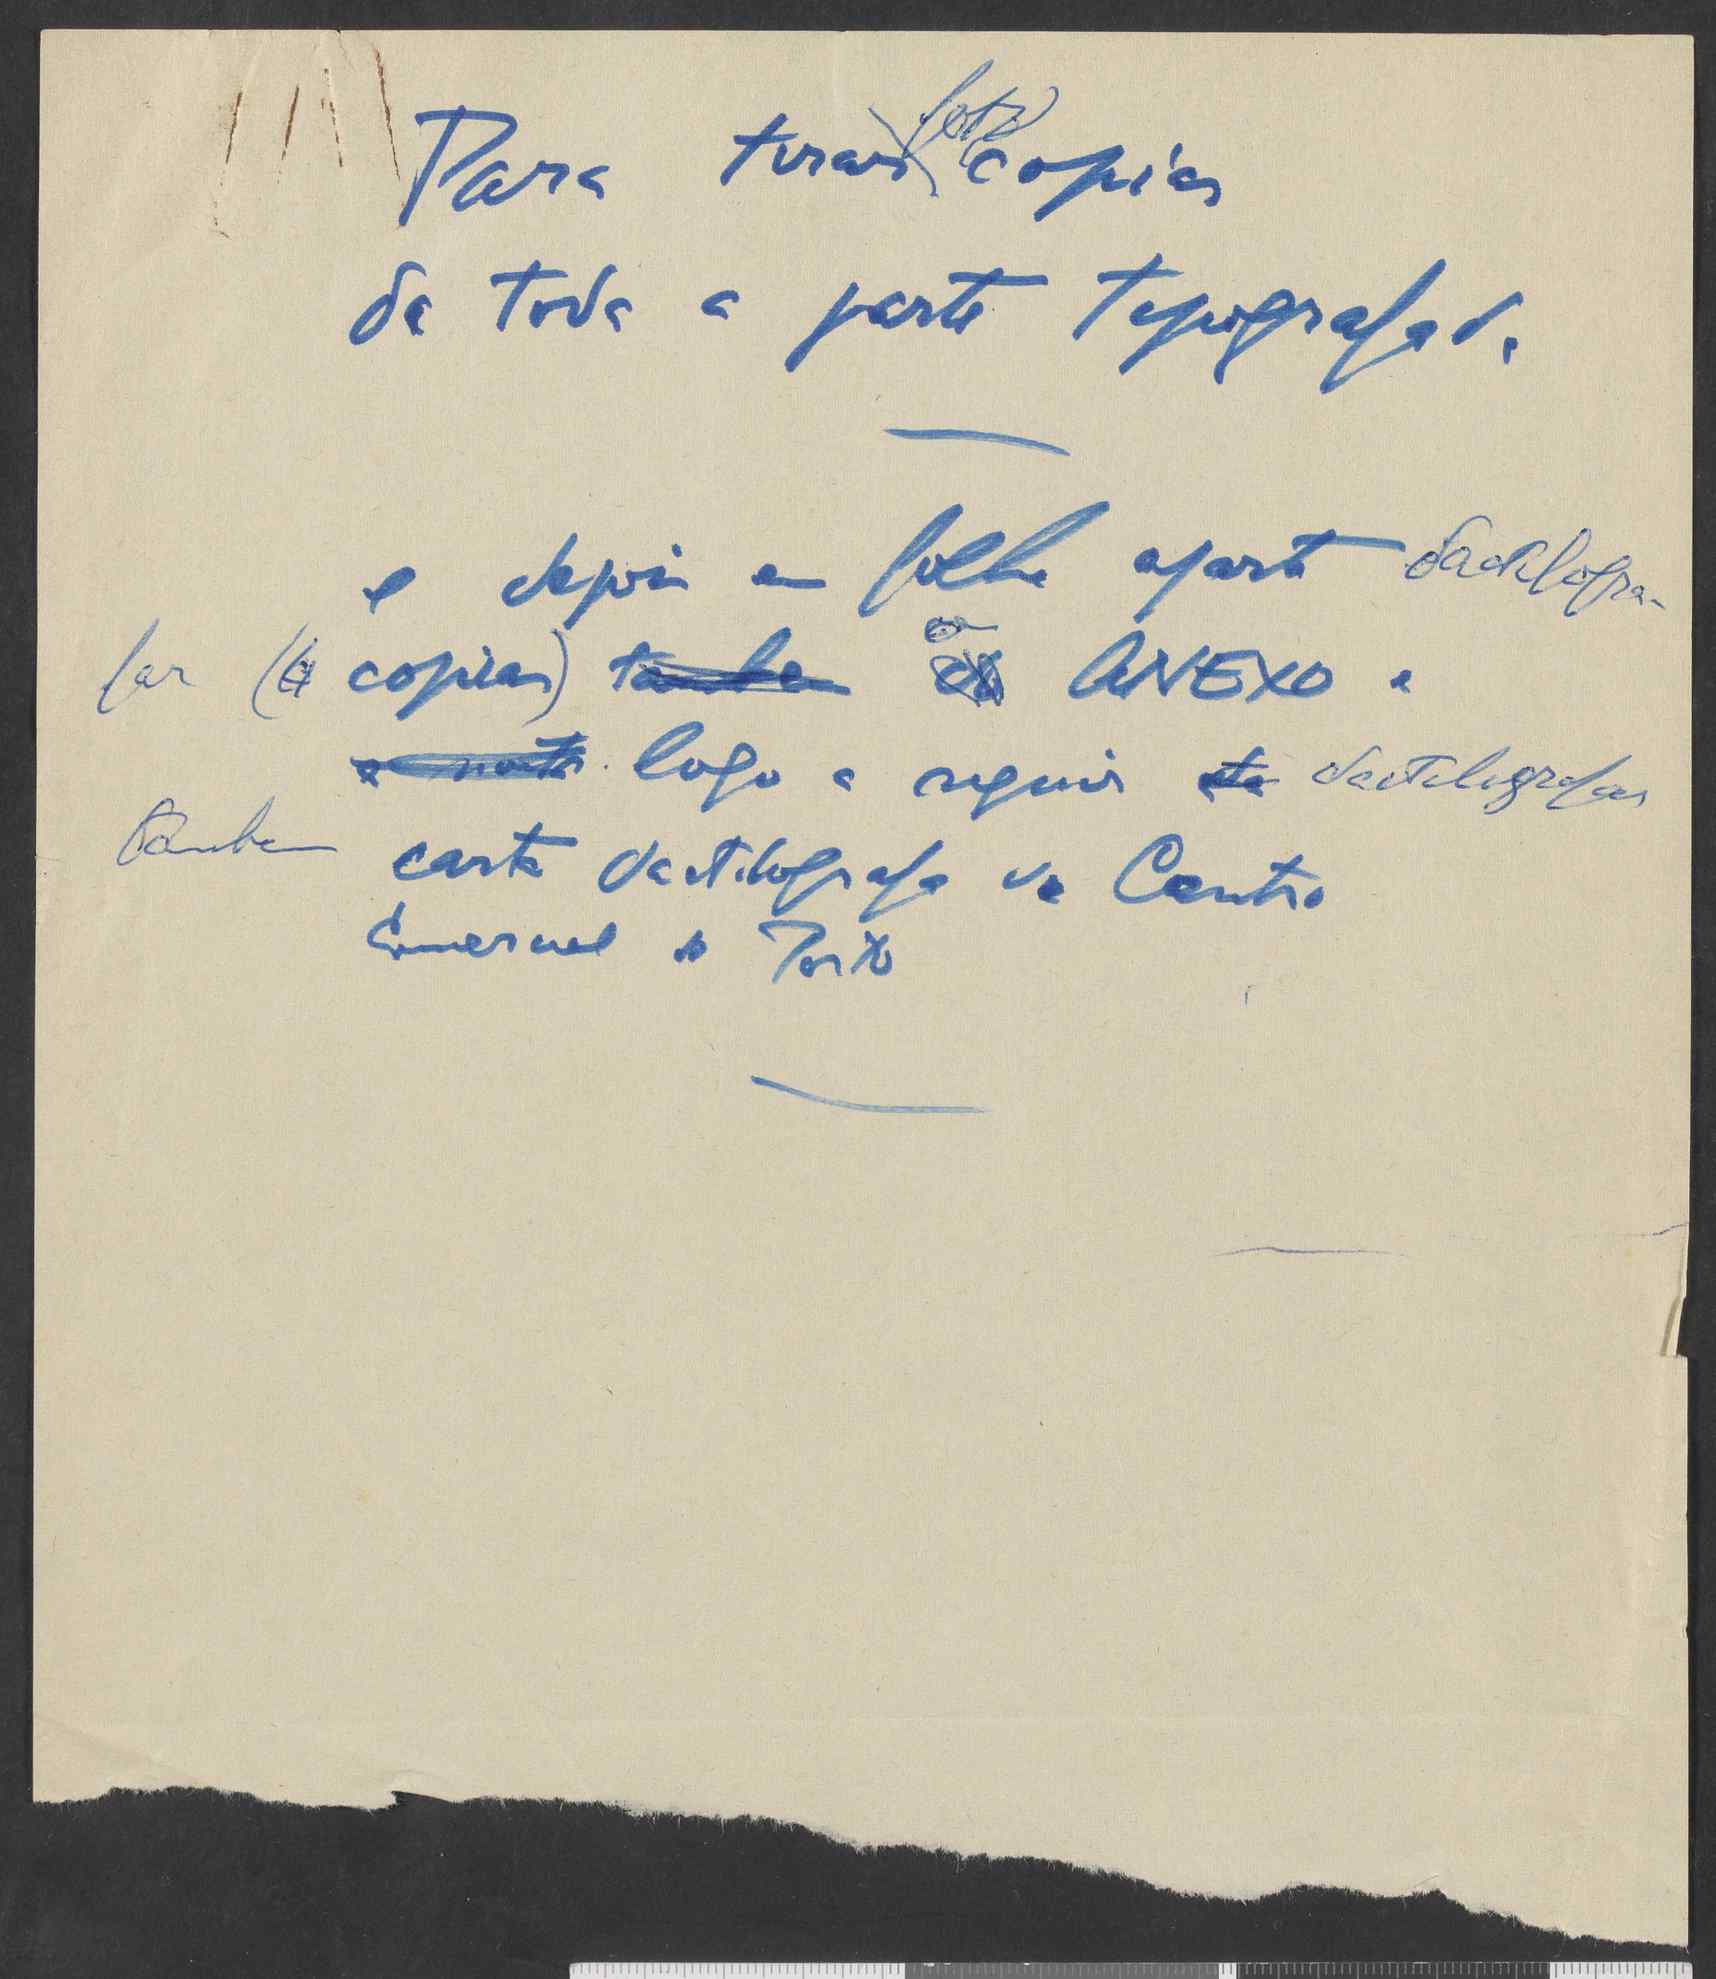 Para tirar foto copias
da toda a parte tipografada
e depois em folha aparte dactilogra-
far (4 copias) tambem o ANEXO e
a nota logo a seguir dactilografar
tambem carta dactilografa do Centro
Comercial do Porto